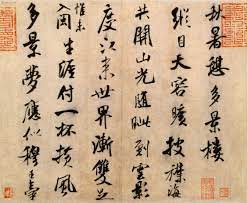 秋暑憩多景樓
縱目天容曠披襟海
共開山光隨眺到雲影
度江來世界漸雙足
惟未
入閩生涯付一杯橫風
多景夢應似穆王臺